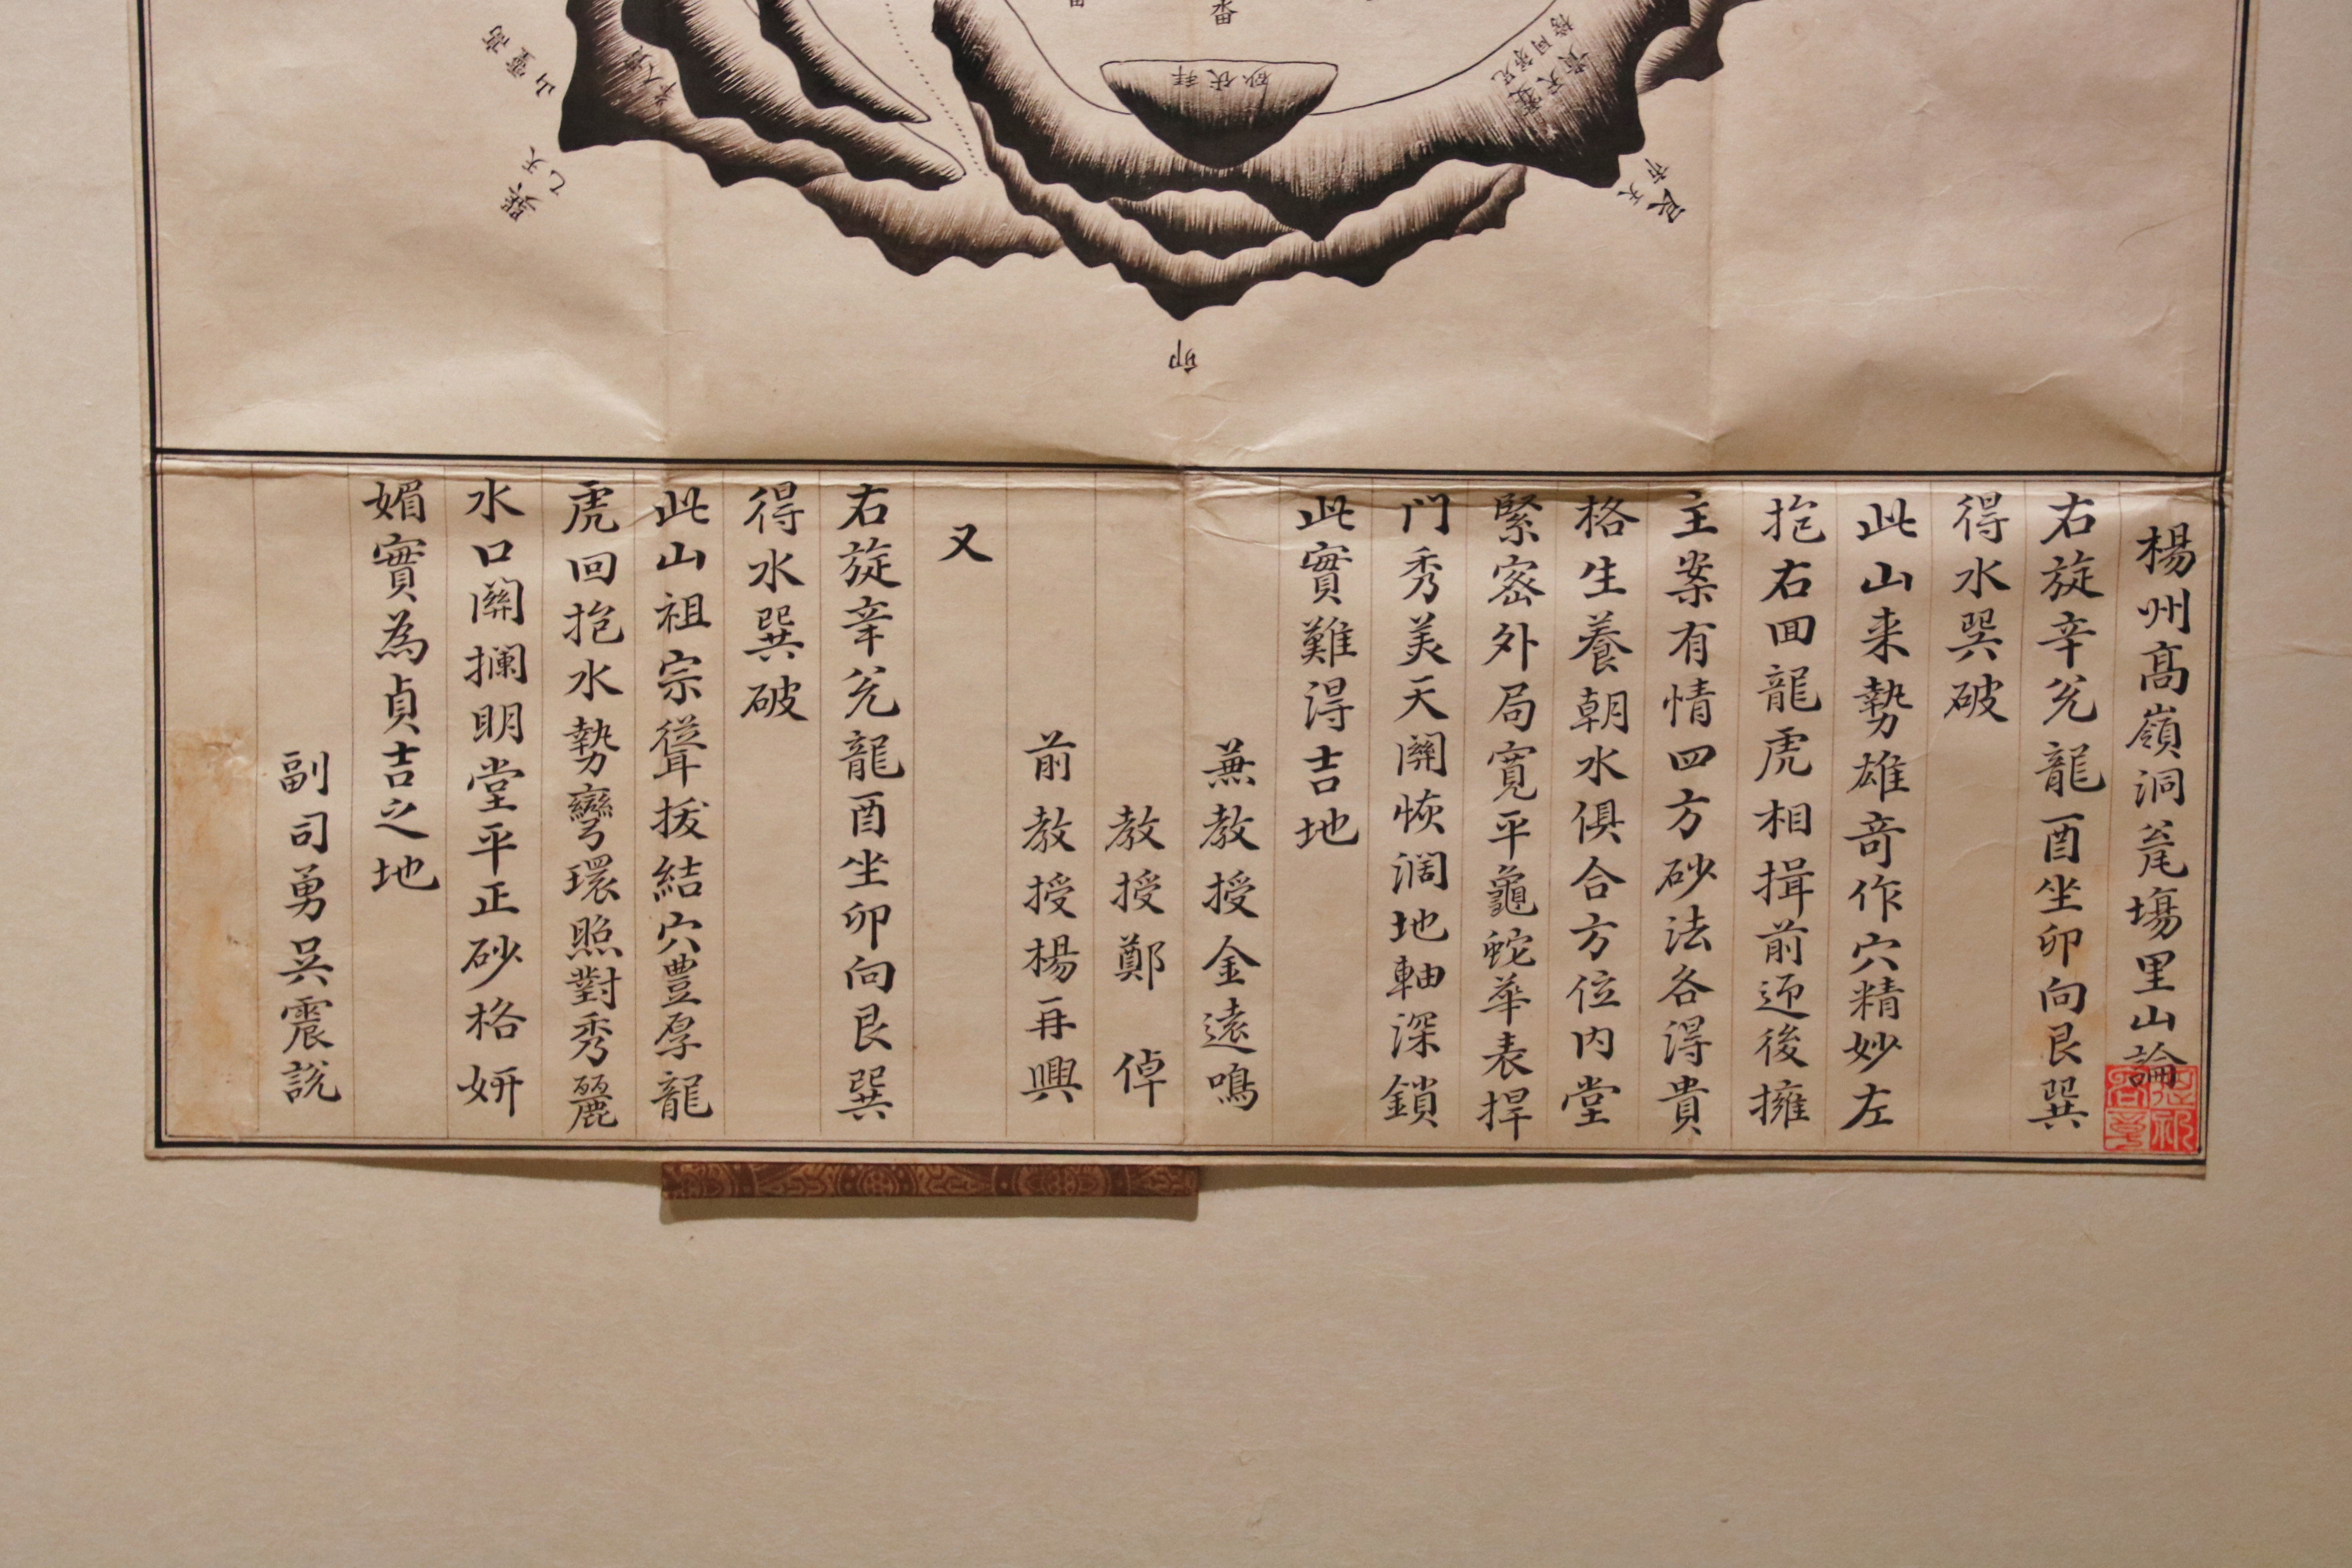 楊州髙嶺洞瓮塲里山論
右旋辛兊龍酉坐卯向艮巽
得水巽破
此山来勢雄竒作穴精妙左
抱右回龍虎相揖前迎後擁
主案有情四方砂法各得貴
格生養朝水俱合方位内堂
緊密外局寛平龜蛇華表捍
門秀美天關恢濶地軸深鎖
此實難得吉地
兼教授金遠鳴
教授鄭倬
前教授楊再興
又
右旋辛兊龍酉坐卯向艮巽
得水巽破
此山祖宗聳拔結穴豊厚龍
虎回抱水勢彎環照對秀麗
水口關攔明堂平正砂格妍
媚實為貞吉之地
副司勇吳震說
卯
拜伏砂
高靈山
天乙
巽
艮
天市